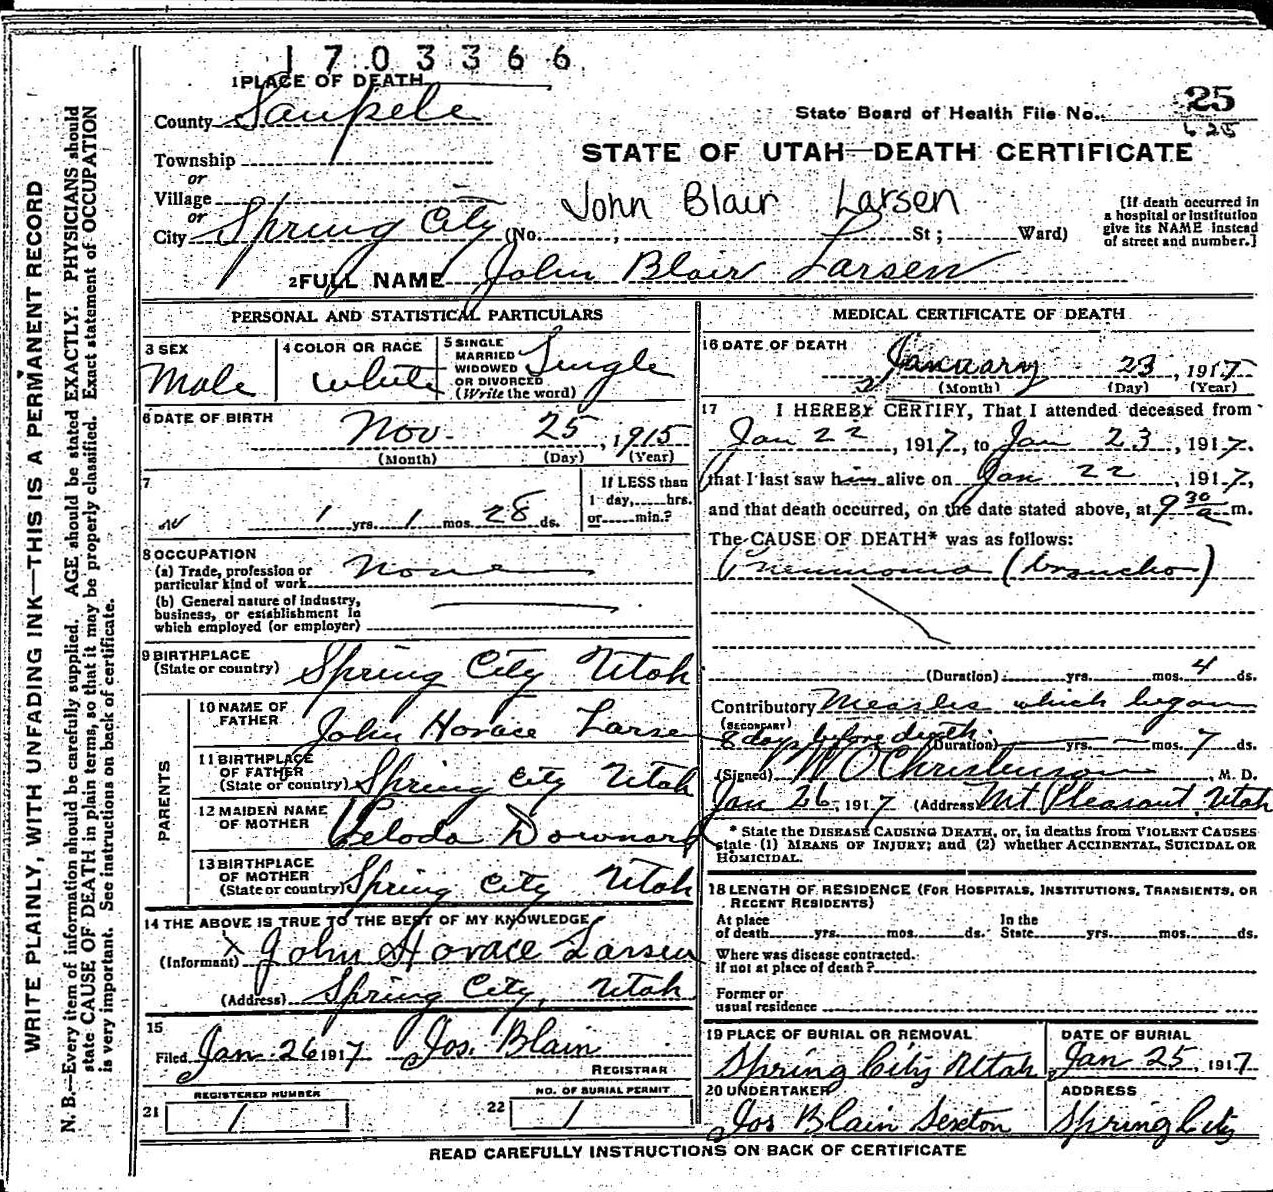 1703366
1 PLACE OF DEATH
County Sanpete
State Board of Health File No. 25
625
Township
or
STATE OF UTAH—DEATH CERTIFICATE
Village
or
John Blair Larsen
City Spring City (No. , St ; Ward)
[If death occurred in
a hospital or institution
give its NAME instead
of street and number.]
2 FULL NAME John Blair Larsen
PERSONAL AND STATISTICAL PARTICULARS
3 SEX
Male
4 COLOR OR RACE
White
5 SINGLE
MARRIED
WIDOWED
OR DIVORCED
(Write the word)
Single
6 DATE OF BIRTH
Nov. 25, 1915
(Month) (Day) (Year)
7
1 yrs. 1 mos. 28 ds.
If LESS than
1 day, hrs.
or min.?
8 OCCUPATION
(a) Trade, profession or
particular kind of work None
(b) General nature of industry,
business, or establishment in
which employed (or employer)
9 BIRTHPLACE
(State or country) Spring City Utah
PARENTS
10 NAME OF
FATHER John Horace Larsen
11 BIRTHPLACE
OF FATHER
(State or country) Spring City Utah
12 MAIDEN NAME
OF MOTHER Veloda Downard
13 BIRTHPLACE
OF MOTHER
(State or country) Spring City Utah
14 THE ABOVE IS TRUE TO THE BEST OF MY KNOWLEDGE
X
(Informant) John Horace Larsen
(Address) Spring City, Utah
15
Filed Jan. 26 1917 Jos. Blain
REGISTRAR
REGISTERED NUMBER
21 1
NO. OF BURIAL PERMIT
22 1
MEDICAL CERTIFICATE OF DEATH
16 DATE OF DEATH
January 23, 1917
(Month) (Day) (Year)
17 I HEREBY CERTIFY, That I attended deceased from
Jan 22, 1917, to Jan 23, 1917,
that I last saw him alive on Jan 22, 1917,
and that death occurred, on the date stated above, at 9 30 a m.
The CAUSE OF DEATH* was as follows:
Pneumonia (broncho)
(Duration) yrs. mos. 4 ds.
Contributory Measles which began
(SECONDARY)
8 days before death.
(Duration) yrs. mos. 7 ds.
(Signed) W O Christenson, M. D.
Jan 26, 1917 (Address) Mt Pleasant Utah
* State the DISEASE CAUSING DEATH, or, in deaths from VIOLENT CAUSES
state (1) MEANS OF INJURY; and (2) whether ACCIDENTAL, SUICIDAL OR
HOMICIDAL.
18 LENGTH OF RESIDENCE (FOR HOSPITALS, INSTITUTIONS, TRANSIENTS, OR
RECENT RESIDENTS)
At place
of death yrs. mos. ds.
In the
State yrs. mos. ds.
Where was disease contracted.
if not at place of death?
Former or
usual residence
19 PLACE OF BURIAL OR REMOVAL
Spring City Utah
DATE OF BURIAL
Jan 25, 1917
20 UNDERTAKER
Jos Blain Sexton
ADDRESS
Spring City
READ CAREFULLY INSTRUCTIONS ON BACK OF CERTIFICATE
WRITE PLAINLY, WITH UNFADING INK—THIS IS A PERMANENT RECORD
N. B.—Every item of information should be carefully supplied. AGE should be stated EXACTLY. PHYSICIANS should
state CAUSE OF DEATH in plain terms, so that it may be properly classified. Exact statement of OCCUPATION
is very important. See instructions on back of certificate.